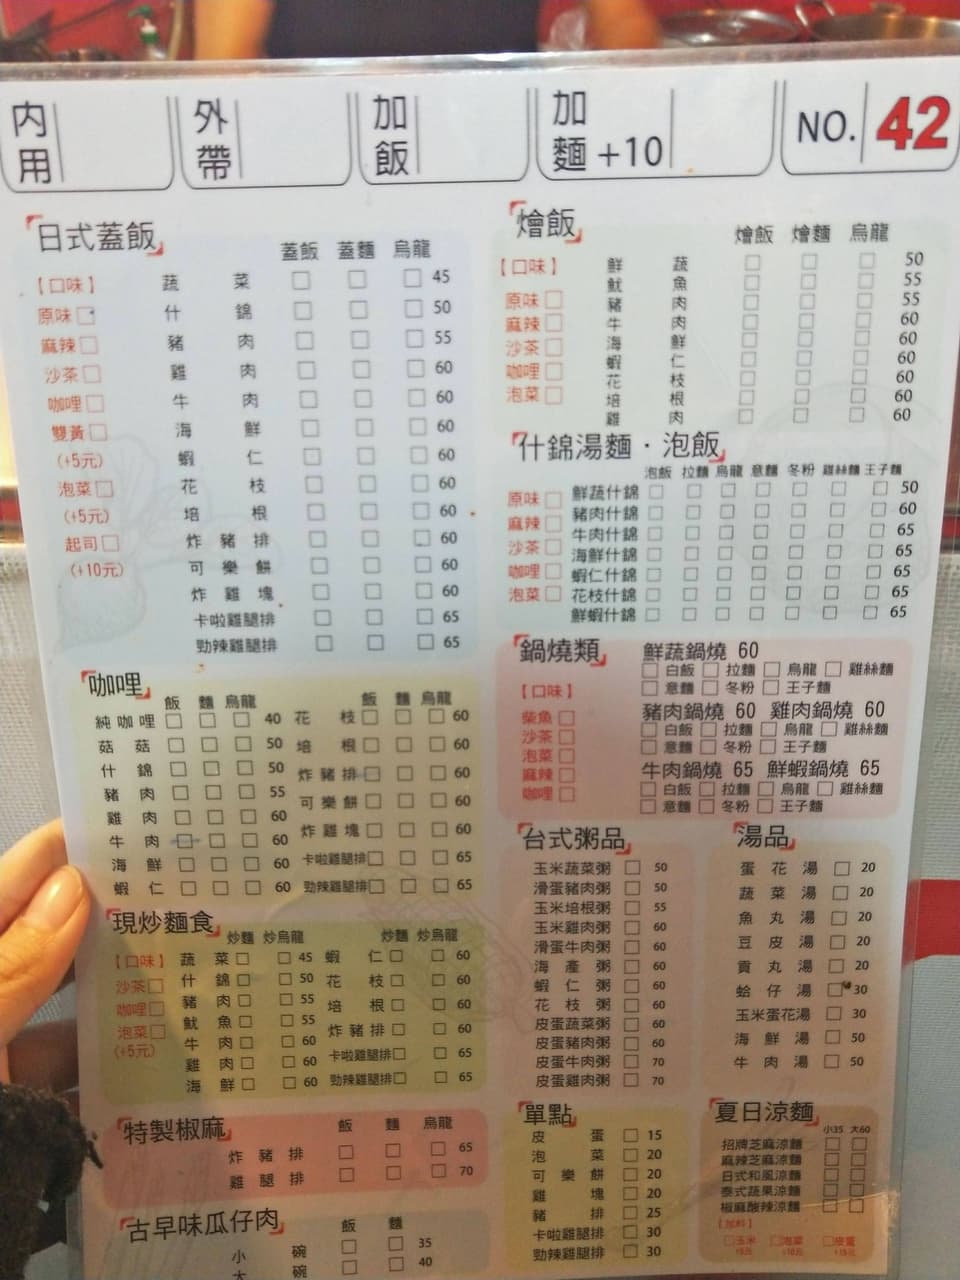 內用 外帶 加飯 加麵+10 NO. 42
日式蓋飯 蓋飯 蓋麵 烏龍
【口味】
原味□
麻辣□
沙茶□
咖哩□
雙黃□
(+5元)
泡菜□
(+5元)
起司□
(+10元)
蔬菜 □ □ □ 45
什錦 □ □ □ 50
豬肉 □ □ □ 55
雞肉 □ □ □ 60
牛肉 □ □ □ 60
海鮮 □ □ □ 60
蝦仁 □ □ □ 60
花枝 □ □ □ 60
培根 □ □ □ 60
炸豬排 □ □ □ 60
可樂餅 □ □ □ 60
炸雞塊 □ □ □ 60
卡啦雞腿排 □ □ □ 65
勁辣雞腿排 □ □ □ 65
咖哩 飯 麵 烏龍
純咖哩 □ □ □ 40
菇菇 □ □ □ 50
什錦 □ □ □ 50
豬肉 □ □ □ 55
雞肉 □ □ □ 60
牛肉 □ □ □ 60
海鮮 □ □ □ 60
蝦仁 □ □ □ 60
飯 麵 烏龍
花枝 □ □ □ 60
培根 □ □ □ 60
炸豬排 □ □ □ 60
可樂餅 □ □ □ 60
炸雞塊 □ □ □ 60
卡啦雞腿排 □ □ □ 65
勁辣雞腿排 □ □ □ 65
現炒麵食 炒麵 炒烏龍
【口味】
沙茶□
咖哩□
泡菜□
(+5元)
蔬菜 □ □ 45
什錦 □ □ 50
豬肉 □ □ 55
魷魚 □ □ 55
牛肉 □ □ 60
雞肉 □ □ 60
海鮮 □ □ 60
炒麵 炒烏龍
蝦仁 □ □ 60
花枝 □ □ 60
培根 □ □ 60
炸豬排 □ □ 60
卡啦雞腿排 □ □ 65
勁辣雞腿排 □ □ 65
特製椒麻 飯 麵 烏龍
炸豬排 □ □ □ 65
雞腿排 □ □ □ 70
古早味瓜仔肉 飯 麵
小碗 □ □ 35
大碗 □ □ 40
燴飯 燴飯 燴麵 烏龍
【口味】
原味□
麻辣□
沙茶□
咖哩□
泡菜□
鮮蔬 □ □ □ 50
魷魚 □ □ □ 55
豬肉 □ □ □ 55
牛肉 □ □ □ 60
海鮮 □ □ □ 60
蝦仁 □ □ □ 60
花枝 □ □ □ 60
培根 □ □ □ 60
雞肉 □ □ □ 60
什錦湯麵・泡飯
泡飯 拉麵 烏龍 意麵 冬粉 雞絲麵 王子麵
原味□
麻辣□
沙茶□
咖哩□
泡菜□
鮮蔬什錦 □ □ □ □ □ □ □ 50
豬肉什錦 □ □ □ □ □ □ □ 60
牛肉什錦 □ □ □ □ □ □ □ 65
海鮮什錦 □ □ □ □ □ □ □ 65
蝦仁什錦 □ □ □ □ □ □ □ 65
花枝什錦 □ □ □ □ □ □ □ 65
鮮蝦什錦 □ □ □ □ □ □ □ 65
鍋燒類
【口味】
柴魚□
沙茶□
泡菜□
麻辣□
咖哩□
鮮蔬鍋燒 60
□白飯 □拉麵 □烏龍 □雞絲麵
□意麵 □冬粉 □王子麵
豬肉鍋燒 60 雞肉鍋燒 60
□白飯 □拉麵 □烏龍 □雞絲麵
□意麵 □冬粉 □王子麵
牛肉鍋燒 65 鮮蝦鍋燒 65
□白飯 □拉麵 □烏龍 □雞絲麵
□意麵 □冬粉 □王子麵
台式粥品
玉米蔬菜粥 □ 50
滑蛋豬肉粥 □ 50
玉米培根粥 □ 55
玉米雞肉粥 □ 60
滑蛋牛肉粥 □ 60
海產粥 □ 60
蝦仁粥 □ 60
花枝粥 □ 60
皮蛋蔬菜粥 □ 60
皮蛋豬肉粥 □ 60
皮蛋牛肉粥 □ 70
皮蛋雞肉粥 □ 70
湯品
蛋花湯 □ 20
蔬菜湯 □ 20
魚丸湯 □ 20
豆皮湯 □ 20
貢丸湯 □ 20
蛤仔湯 □ 30
玉米蛋花湯 □ 30
海鮮湯 □ 50
牛肉湯 □ 50
單點
皮蛋 □ 15
泡菜 □ 20
可樂餅 □ 20
雞塊 □ 20
豬排 □ 25
卡啦雞腿排 □ 30
勁辣雞腿排 □ 30
夏日涼麵
小35 大60
招牌芝麻涼麵 □ □
麻辣芝麻涼麵 □ □
日式和風涼麵 □ □
泰式蔬果涼麵 □ □
椒麻酸辣涼麵 □ □
【加料】
□玉米 □泡菜 □皮蛋
+5元 +10元 +15元